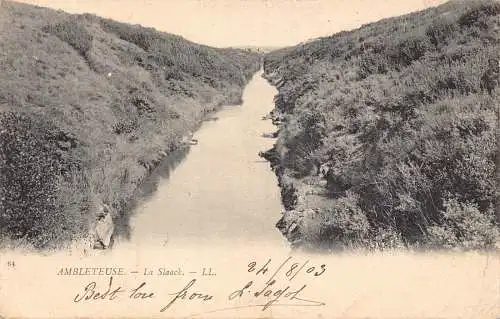 64
AMBLETEUSE. — La Slaack. — LL.
24/8/03
Best love from L. Sagot